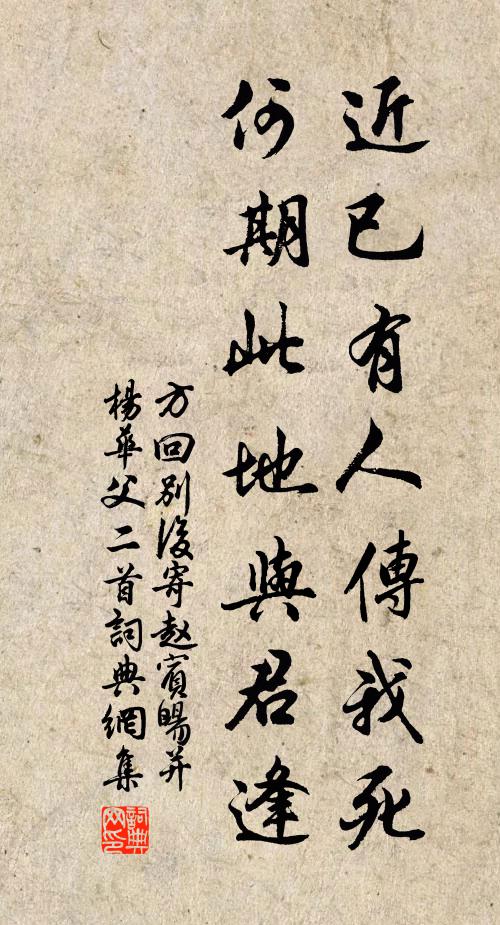 近已有人傳我死
何期此地與君逢
方回別後寄赵賓暘并
楊華父二首詞典網集
詞典网印